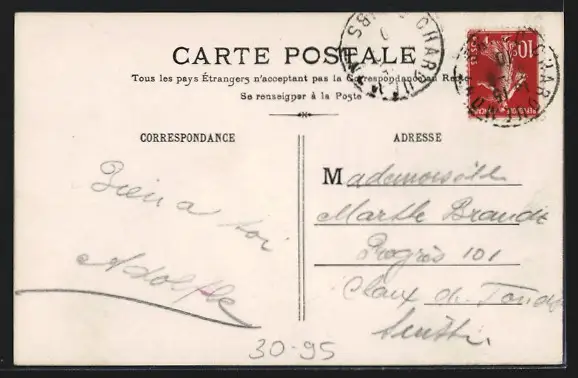 CARTE POSTALE
Tous les pays Étrangers n'acceptant pas la Correspondance au Recto
Se renseigner à la Poste
CORRESPONDANCE
ADRESSE
Bien a toi
Adolphe
Mademoiselle
Marthe Brandt
Progrès 101
Chaux de Fonds
Suisse.
30-95
CHARQU
10
CHARQU